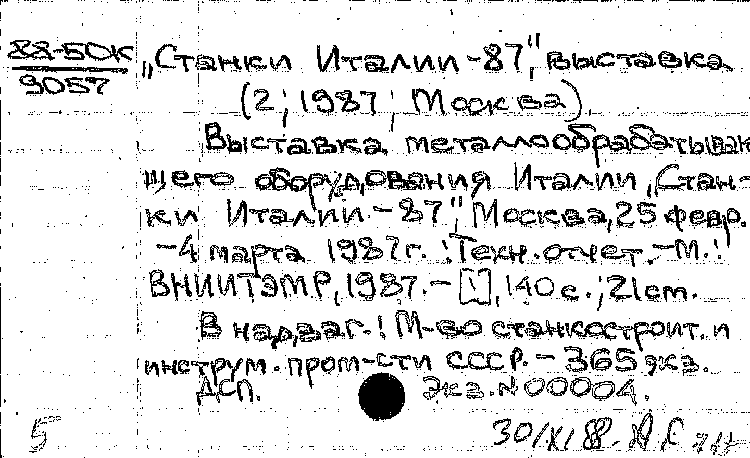 88-50К
9057
„Станки Италии-87", выставка
(2; 1987; Москва).
Выставка металлообрабатываю-
щего оборудования Италии „Стан-
ки Италии-87", Москва, 25 февр.
-4 марта 1987г.: Техн. отчет.-М.:
ВНИИТЭМР, 1987.-[1], 140 с.; 21 cm.
В надзаг.: М-во станкостроит. и
инструм. пром-сти СССР.-365 экз.
ДСП. Экз.N00004.
5
30/XI 88.